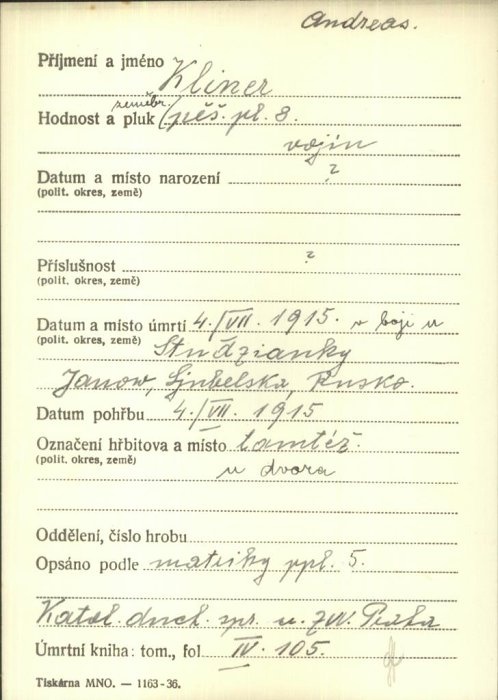 Andreas.
Příjmení a jméno Kliner
zeměbr.
Hodnost a pluk pěš. pl. 8.
vojín
Datum a místo narození ?
(polit. okres, země)
Příslušnost ?
(polit. okres, země)
Datum a místo úmrtí 4./VII. 1915. v boji u
(polit. okres, země) Studzianky
Janow, Ljubelska, Rusko.
Datum pohřbu 4./VII. 1915
Označení hřbitova a místo tamtéž.
(polit. okres, země)
u dvora
Oddělení, číslo hrobu
Opsáno podle matriky ppl. 5.
Katol. duch. spr. u. ZVV. Praha
Úmrtní kniha: tom., fol IV. 105.
Tiskárna MNO. — 1163-36.